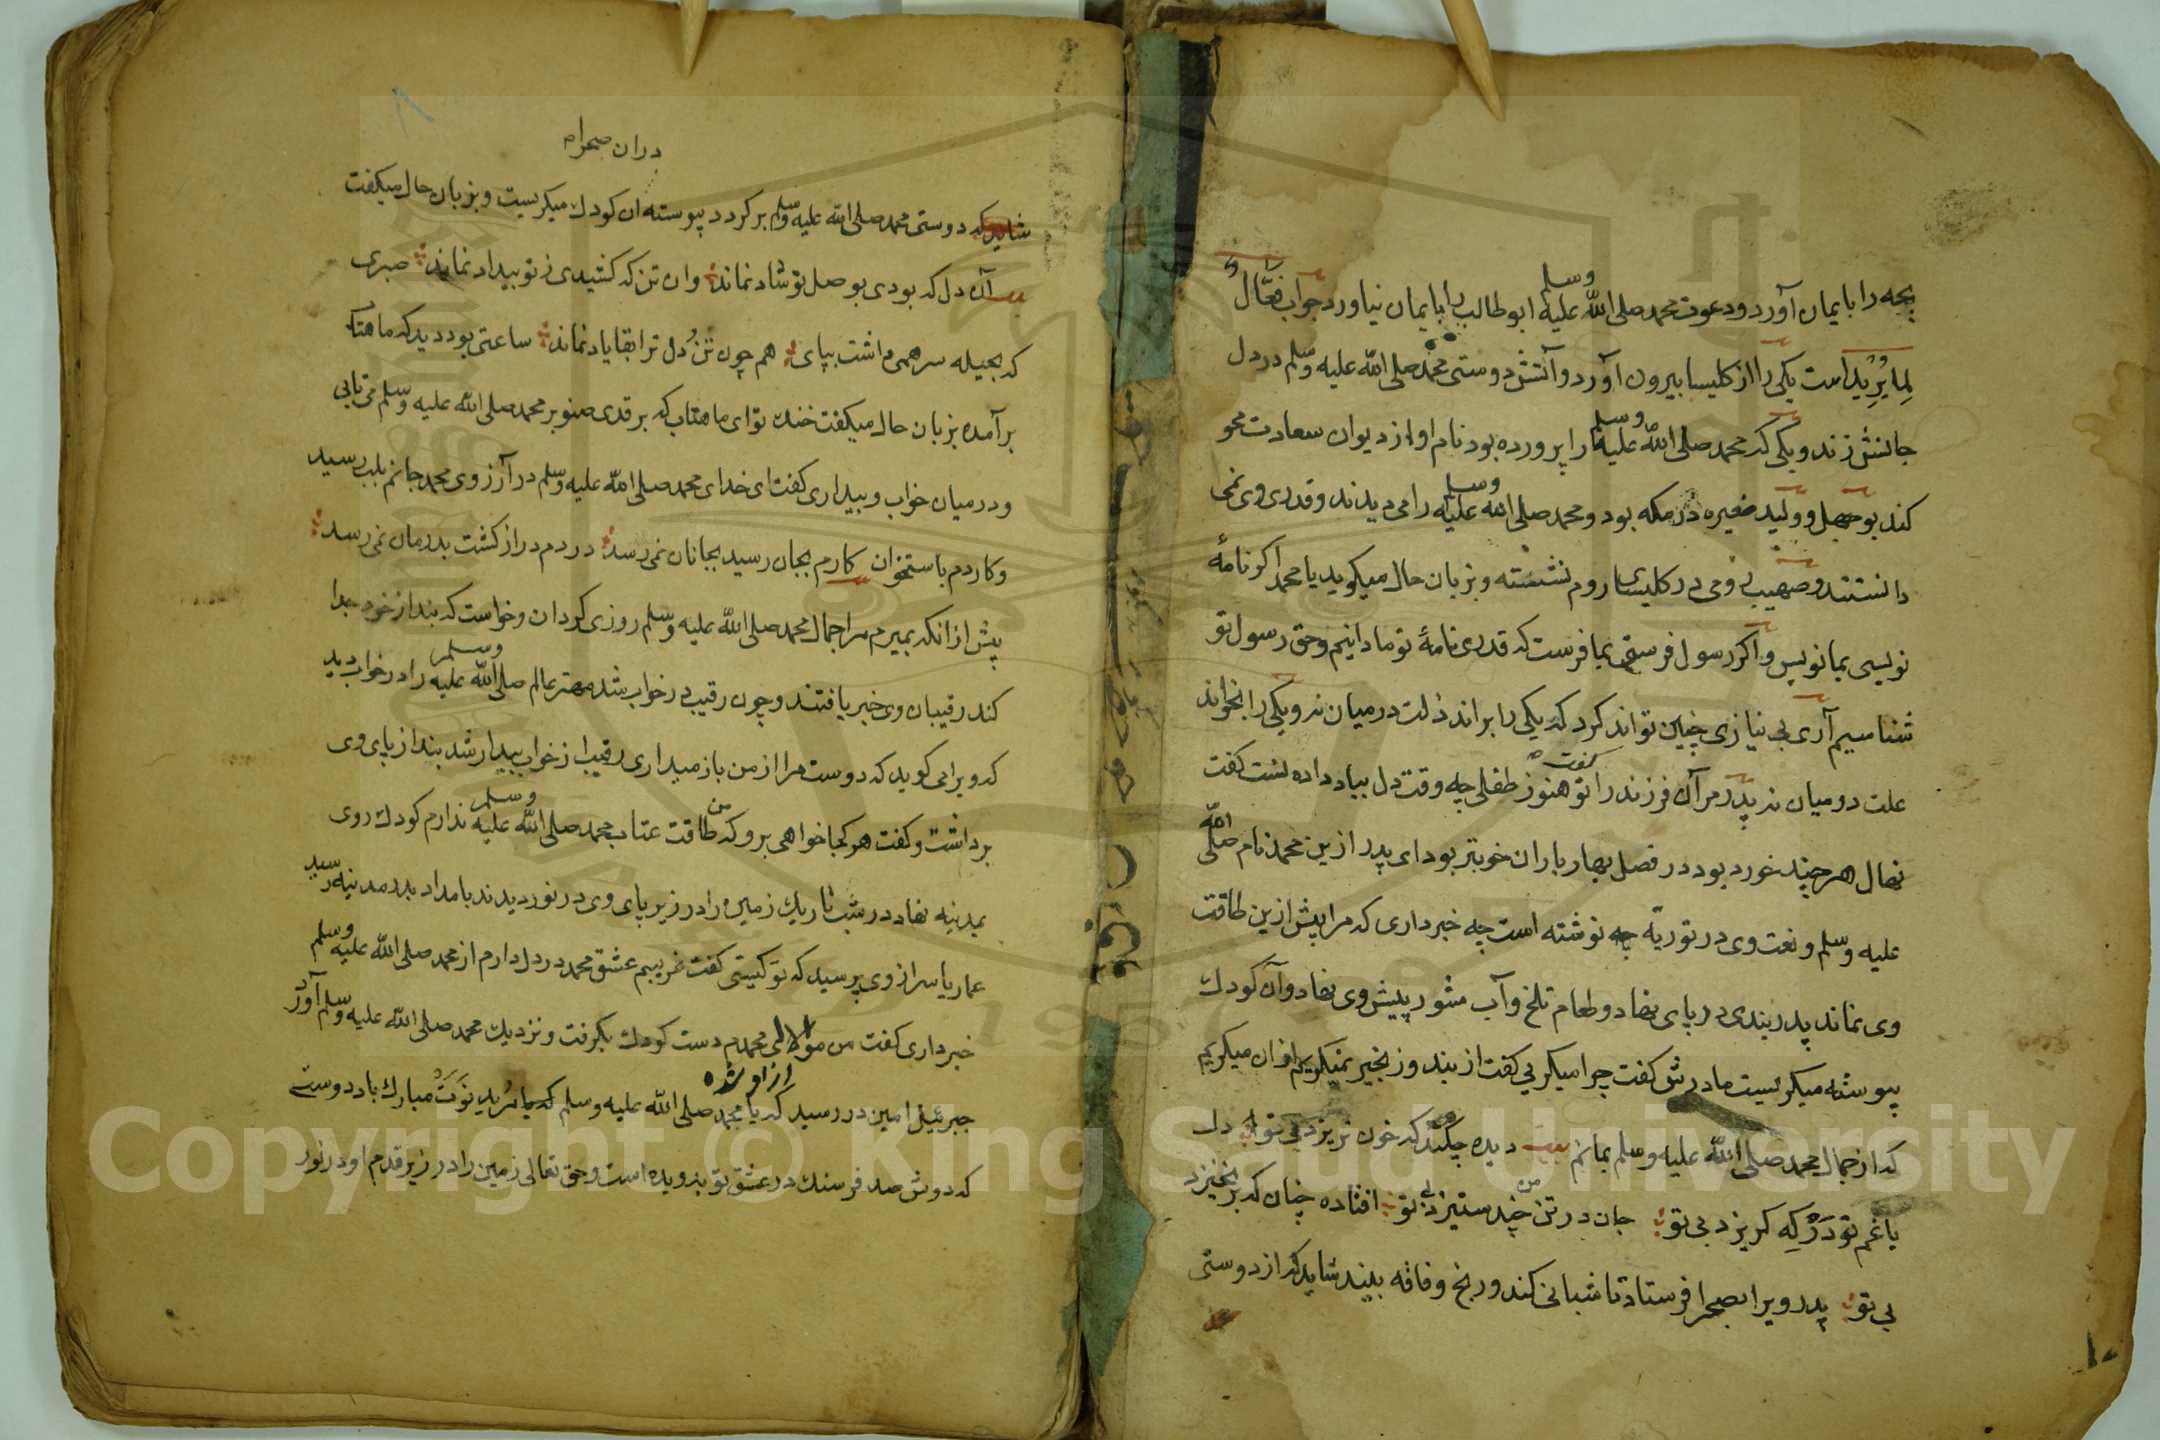 بچه را بایمان آورد ودعوت محمد صلی الله علیه وسلم ابو طالب را بایمان نیاورد جواب فعّال
لما یرید است یکی را از کلیسا بیرون آورد وآتش دوستی محمد صلی الله علیه وسلم در دل
جانش زند ویکی که محمد صلی الله علیه وسلم را پرورده بود نام او از دیوان سعادت محو
کند بوجهل وولید مغیره در مکه بود ومحمد صلی الله علیه وسلم را می دیدند وقدر وی نمی
دانستند وصهیب رومی در کلیسای روم نشسته وبزبان حال میکوید یا محمد اکر نامهٔ
نویسی بما نویس واکر رسول فرستی بما فرست که قدر نامهٔ تو ما دانیم وحق رسول تو
شناسیم آری بی نیازی چنین تواند کرد که یکی را براند ذلت درمیان نه ویکی را بخواند
علت درمیان نه پدر مر آن فرزند را کفت تو هنوز طفلی چه وقت دل بباد داده تست کفت
نهال هر چند خورد بود در فصل بهار باران خوبتر بود ای پدر ازین محمد نام صلی الله
علیه وسلم ونعت وی در توریة چه نوشته است چه خبر داری که مرا پیش ازین طاقت
وی نماند پدر بندی در پای نهاد وطعام تلخ وآب شور پیش وی نهاد وآن کودك
پیوسته میکریست مادرش کفت چرا میکریی کفت از بند وزنجیر نمیکریم ازان میکریم
که از جمال محمد صلی الله علیه وسلم بمانم بیت دیده چکند که خون نریزد بی تو دل
با غم تو در که کریزد بی تو جان در تن من چند ستیزد بی تو افتاده چنان که بر نخیزد
بی تو پدر ویرا بصحرا فرستاد تا شبانی کند ورنج وفاقه بیند شاید که از دوستی
دران صحرا م
شاید که دوستی محمد صلی الله علیه وسلم بر کردد پیوسته ان کودك میکریست وبزبان حال میکفت
بیت آن دل که بودی بوصل تو شاد نماند وان تن که کشیدی ز تو بیداد نماند صبری
که بحیله سر همی داشت بپای هم چون تن ودل ترا بقا یاد نماند ساعتی بود دید که ماهتاب
برآمد بزبان حال میکفت خنك تو ای ماهتاب که بر قد صنوبر محمد صلی الله علیه وسلم می تابی
ودر میان خواب وبیداری کفت ای خدای محمد صلی الله علیه وسلم در آرزوی محمد جانم بلب رسید
وکاردم باستخوان کارم بجان رسید بجانان نمی رسد دردم دراز کشت بدرمان نمی رسد
پیش ازانکه بمیرم مرا جمال محمد صلی الله علیه وسلم روزی کردان وخواست که بند از خود جدا
کند رقیبان وی خبر یافتند وچون رقیب در خواب شد مهتر عالم صلی الله علیه وسلم را در خواب دید
که ویرا می کوید که دوست مرا از من باز میداری رقیب از خواب بیدار شد بند از پای وی
برداشت وکفت هر کجا خواهی برو که من طاقت عتاب محمد صلی الله علیه وسلم ندارم کودك روی
بمدینه نهاد در شب تاریك زمین را در زیر پای وی در نوردیدند بامداد بدر مدینه رسید
عمار یاسر از وی پرسید که تو کیستی کفت غریبم عشق محمد در دل دارم از محمد صلی الله علیه وسلم
خبر داری کفت من مولای محمدم دست کودك بکرفت ونزدیك محمد صلی الله علیه وسلم آورد
از او شده
جبرئیل امین در رسید که یا محمد صلی الله علیه وسلم که مرید نوت مبارك باد دوست
که دوش صد فرسنك در عشق تو بدویده است وحق تعالی زمین را در زیر قدم او در نور
Copyright © King Saud University